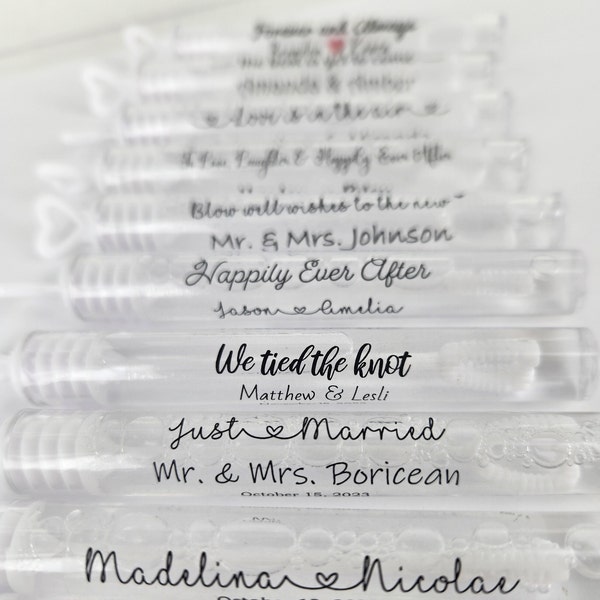 Forever and Always
Amanda & Amber
Love is in the air
Happily Ever After
Blow well wishes to the new
Mr. & Mrs. Johnson
Happily Ever After
Jason Amelia
We tied the knot
Matthew & Lesli
Just Married
Mr. & Mrs. Boricean
October 15, 2023
Madelina Nicolae